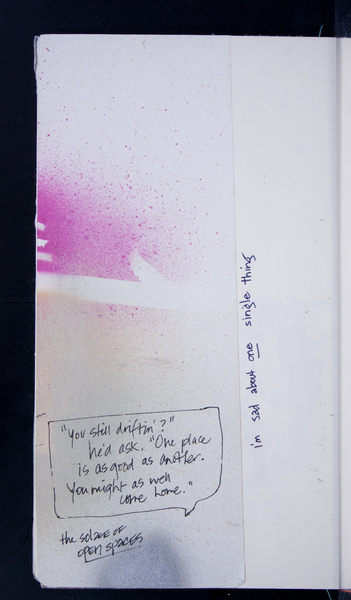 "You still driftin'?"
he'd ask. "One place
is as good as another.
You might as well
come home."
the solace of
open spaces
i'm sad about one single thing